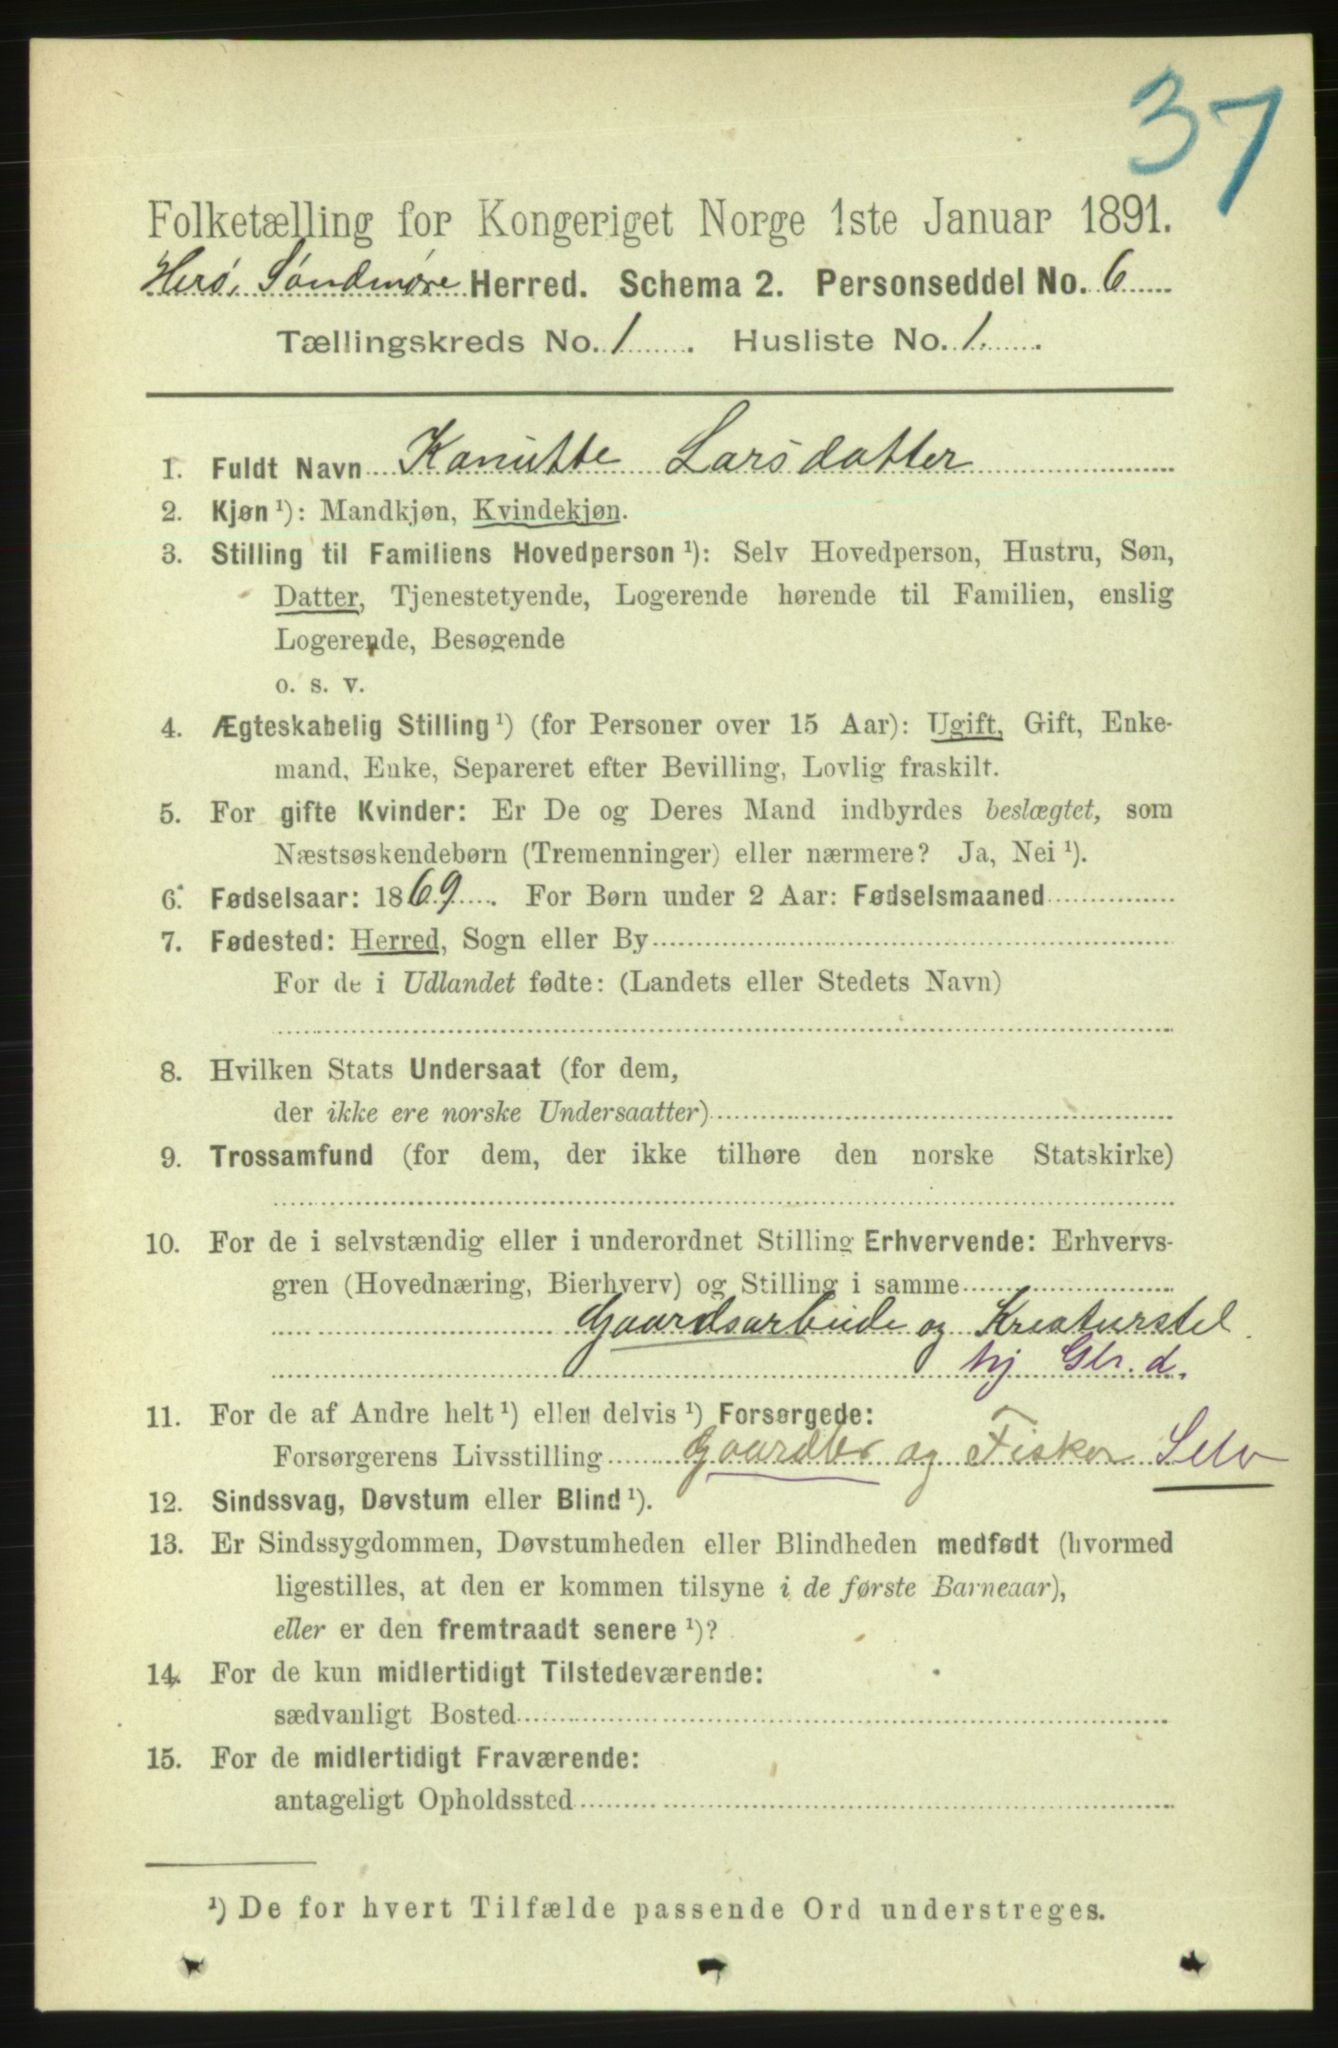 37
Folketælling for Kongeriget Norge 1ste Januar 1891.
Herø, Søndmøre Herred. Schema 2. Personseddel No. 6
Tællingskreds No. 1. Husliste No. 1.
1. Fuldt Navn Kanutte Larsdatter
2. Kjøn ¹): Mandkjøn, Kvindekjøn.
3. Stilling til Familiens Hovedperson ¹): Selv Hovedperson, Hustru, Søn,
Datter, Tjenestetyende, Logerende hørende til Familien, enslig
Logerende, Besøgende
o. s. v.
4. Ægteskabelig Stilling ¹) (for Personer over 15 Aar): Ugift, Gift, Enke-
mand, Enke, Separeret efter Bevilling, Lovlig fraskilt.
5. For gifte Kvinder: Er De og Deres Mand indbyrdes beslægtet, som
Næstsøskendebørn (Tremenninger) eller nærmere? Ja, Nei ¹).
6. Fødselsaar: 1869. For Børn under 2 Aar: Fødselsmaaned
7. Fødested: Herred, Sogn eller By
For de i Udlandet fødte: (Landets eller Stedets Navn)
8. Hvilken Stats Undersaat (for dem,
der ikke ere norske Undersaatter)
9. Trossamfund (for dem, der ikke tilhøre den norske Statskirke)
10. For de i selvstændig eller i underordnet Stilling Erhvervende: Erhvervs-
gren (Hovednæring, Bierhverv) og Stilling i samme
Gaardsarbeide og Kreaturstel
hj Gbr. d.
11. For de af Andre helt ¹) eller delvis ¹) Forsørgede:
Forsørgerens Livsstilling Gaardbr og Fisker Selv
12. Sindssvag, Døvstum eller Blind ¹).
13. Er Sindssygdommen, Døvstumheden eller Blindheden medfødt (hvormed
ligestilles, at den er kommen tilsyne i de første Barneaar),
eller er den fremtraadt senere ¹)?
14. For de kun midlertidigt Tilstedeværende:
sædvanligt Bosted
15. For de midlertidigt Fraværende:
antageligt Opholdssted
¹) De for hvert Tilfælde passende Ord understreges.